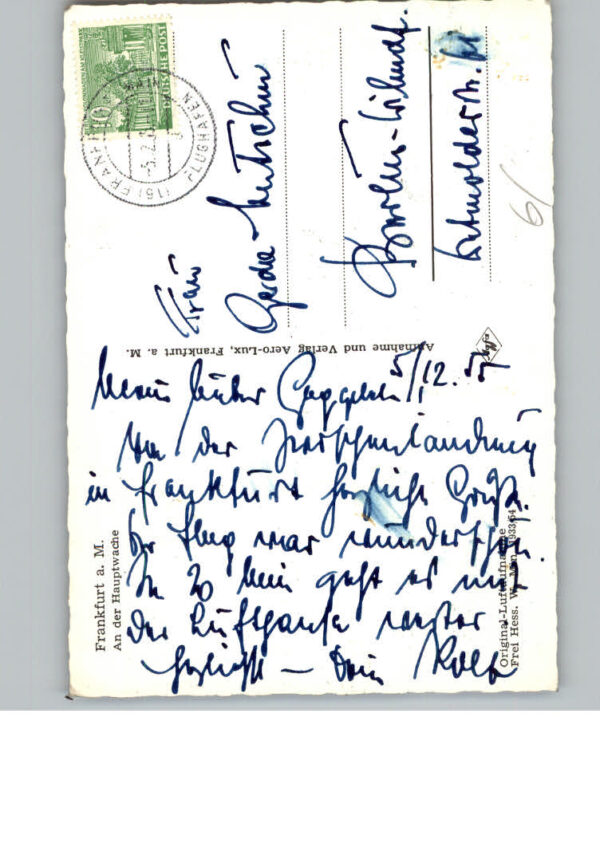 5/12.55
Mein lieber
Von der Zwischenlandung
in Frankfurt herzliche Grüße.
Der Flug war wunderschön.
In 20 Min geht es mit
der Lufthansa weiter
Herzlichst – Dein Rolf
Frau
Gerda
Berlin-Wilmdf.
Detmolderstr.
6/
DEUTSCHE POST
10
(16) FRANKFURT
FLUGHAFEN
Aufnahme und Verlag Aero-Lux, Frankfurt a. M.
Frankfurt a. M.
An der Hauptwache
Original-Luftaufnahme
Frei Hess. W. Min. 1933/54